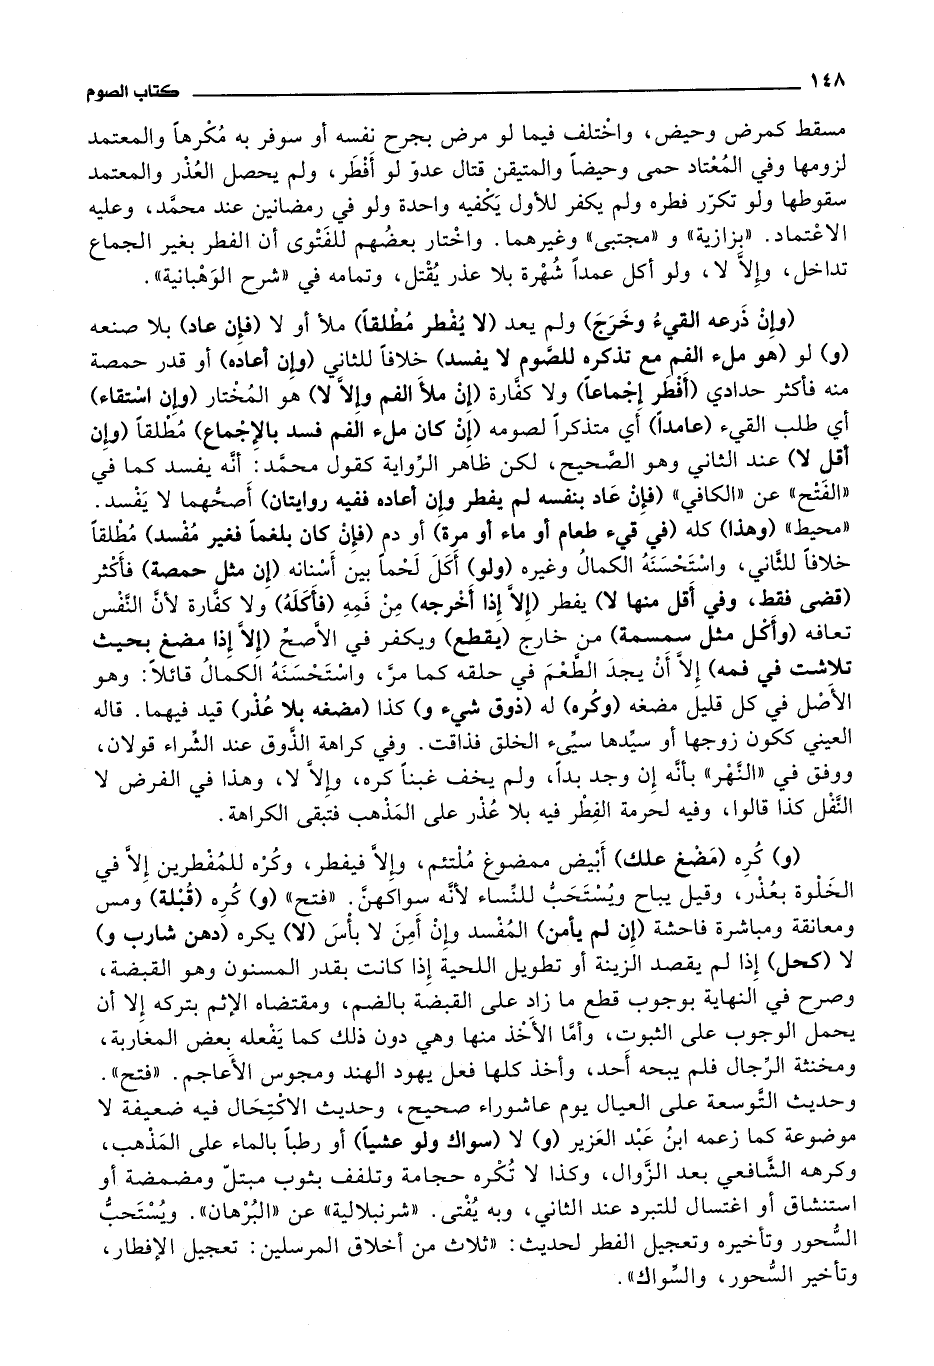 ١٤٨ كتاب الصوم
مسقط كمرض وحيض، واخْتلف فيما لو مرض بجرح نفسه أو سوفر به مُكْرهاً والمعتمد
لزومها وفي المُعْتاد حمى وحيضاً والمتيقن قتال عدوّ لو أَفْطَر، ولم يحصل العُذْر والمعتمد
سقوطها ولو تكرّر فطره ولم يكفر للأول يَكْفيه واحدة ولو في رمضانين عند محمَّد، وعليه
الاعْتماد. «بزازية» و «مجتبى» وغيرهما. واخْتار بعضُهم للفَتْوى أن الفطر بغير الجماع
تداخل، وإلاَّ لا، ولو أكل عمداً شُهْرة بلا عذر يُقْتل، وتمامه في «شرح الوَهْبانية».
(وإنْ ذَرعه القيءُ وخَرَجَ) ولم يعد (لا يُفْطر مُطْلقاً) ملأ أو لا (فإن عاد) بلا صنعه
(و) لو (هو ملء الفم مع تذكره للصَّوم لا يفسد) خلافاً للثاني (وإن أعاده) أو قدر حمصة
منه فأكثر حدادي (أَفْطَر إجْماعاً) ولا كفَّارة (إنْ ملأ الفم وإلاَّ لا) هو المُخْتار (وإن اسْتقاء)
أي طلب القيء (عامداً) أي متذكراً لصومه (إنْ كان ملء الفم فسد بالإجْماع) مُطْلقاً (وإن
أقل لا) عند الثاني وهو الصَّحيح، لكن ظاهر الرِّواية كقول محمَّد: أنَّه يفسد كما في
«الفَتْح» عن «الكافي» (فإنْ عَاد بنفسه لم يفطر وإن أعاده ففيه روايتان) أصحُّهما لا يَفْسد.
«محيط» (وهذا) كله (في قيء طعام أو ماء أو مرة) أو دم (فإنْ كان بلغماً فغير مُفْسد) مُطْلقاً
خلافاً للثَّاني، واسْتَحْسَنَهُ الكمالُ وغيره (ولو) أَكَلَ لَحْماً بين أسْنانه (إن مثل حمصة) فأكْثر
(قضى فقط، وفي أقل منها لا) يفطر (إلاَّ إذا أَخْرجه) مِنْ فَمِهِ (فأكَلَهُ) ولا كفَّارة لأنَّ النَّفْس
تعافه (وأكْل مثل سمسمة) من خارج (يقطع) ويكفر في الأصحّ (إلاَّ إذا مضغ بحيث
تلاشت في فمه) إلاَّ أنْ يجدَ الطَّعْمَ في حلقه كما مرَّ، واسْتَحْسَنَهُ الكمالُ قائلاً: وهو
الأصْل في كل قليل مضغه (وكُره) له (ذوق شيء و) كذا (مضغه بلا عُذْر) قيد فيهما. قاله
العيني ككون زوجها أو سيِّدها سيِّىء الخلق فذاقت. وفي كراهة الذَّوق عند الشِّراء قولان،
ووفق في «النَّهْر» بأنَّه إن وجد بداً، ولم يخف غبناً كره، وإلاَّ لا، وهذا في الفرض لا
النَّفْل كذا قالوا، وفيه لحرمة الفِطْر فيه بلا عُذْر على المَذْهب فتبقى الكراهة.
(و) كُره (مَضْغ علك) أَبْيض ممضوغ مُلْتئم، وإلاَّ فيفطر، وكُرْه للمُفْطرين إلاَّ في
الخَلْوة بعُذْر، وقيل يباح ويُسْتَحَبُّ للنِّساء لأنَّه سواكهنَّ. «فتح» (و) كُره (قُبْلة) ومس
ومعانقة ومباشرة فاحشة (إن لم يأمن) المُفْسد وإنْ أَمِنَ لا بأْسَ (لا) يكره (دهن شارب و)
لا (كحل) إذا لم يقصد الزينة أو تطويل اللحية إذا كانت بقدر المسنون وهو القبضة،
وصرح في النهاية بوجوب قطع ما زاد على القبضة بالضم، ومقتضاه الإثم بتركه إلا أن
يحمل الوجوب على الثبوت، وأمَّا الأَخْذ منها وهي دون ذلك كما يَفْعله بعض المغاربة،
ومخنثة الرِّجال فلم يبحه أَحد، وأخذ كلها فعل يهود الهند ومجوس الأَعاجم. «فتح».
وحديث التَّوسعة على العيال يوم عاشوراء صحيح، وحديث الاكْتِحَال فيه ضعيفة لا
موضوعة كما زعمه ابنُ عَبْد العَزير (و) لا (سواك ولو عشياً) أو رطباً بالماء على المَذْهب،
وكرهه الشَّافعي بعد الزَّوال، وكذا لا تُكْره حجامة وتلفف بثوب مبتلّ ومضمضة أو
استنشاق أو اغتسال للتبرد عند الثاني، وبه يُفْتى. «شرنبلالية» عن «البُرْهان». ويُسْتَحبُّ
السُّحور وتأخيره وتعجيل الفطر لحديث: «ثلاث من أخلاق المرسلين: تعجيل الإفطار،
وتأخير السُّحور، والسِّواك».